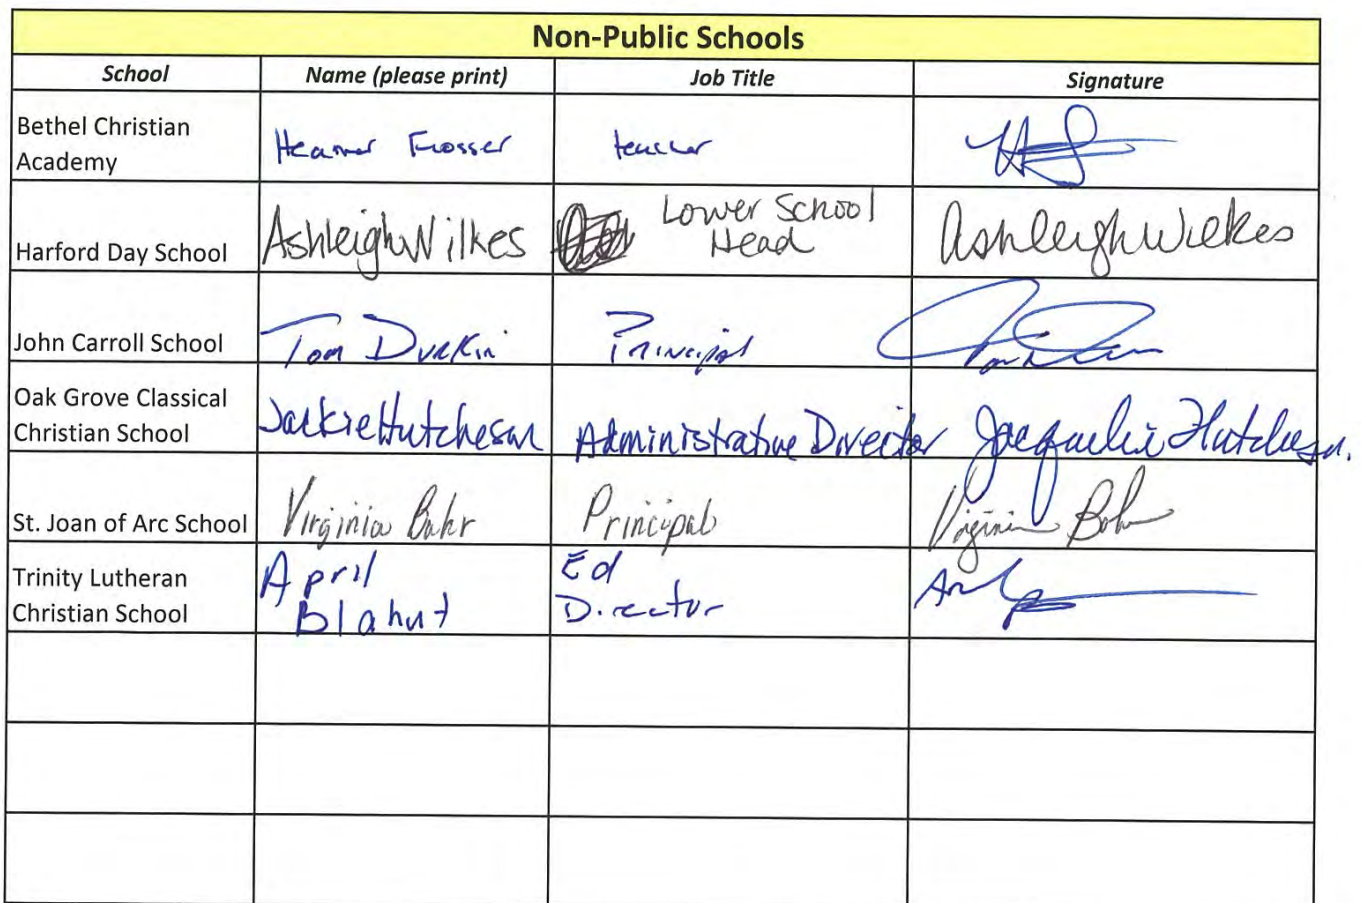 Non-Public Schools
School Name (please print) Job Title Signature
Bethel Christian
Academy
teacher
Harford Day School
Ashleigh Wilkes
Lower School
Head
Ashleigh Wilkes
John Carroll School
Tom Durkin
Principal
Oak Grove Classical
Christian School
Jackie Hutcheson
Administrative Director
Jacquelin Hutcheson.
St. Joan of Arc School
Virginia Bahr
Principal
Virginia Bahr
Trinity Lutheran
Christian School
April
Blahut
Ed
Director